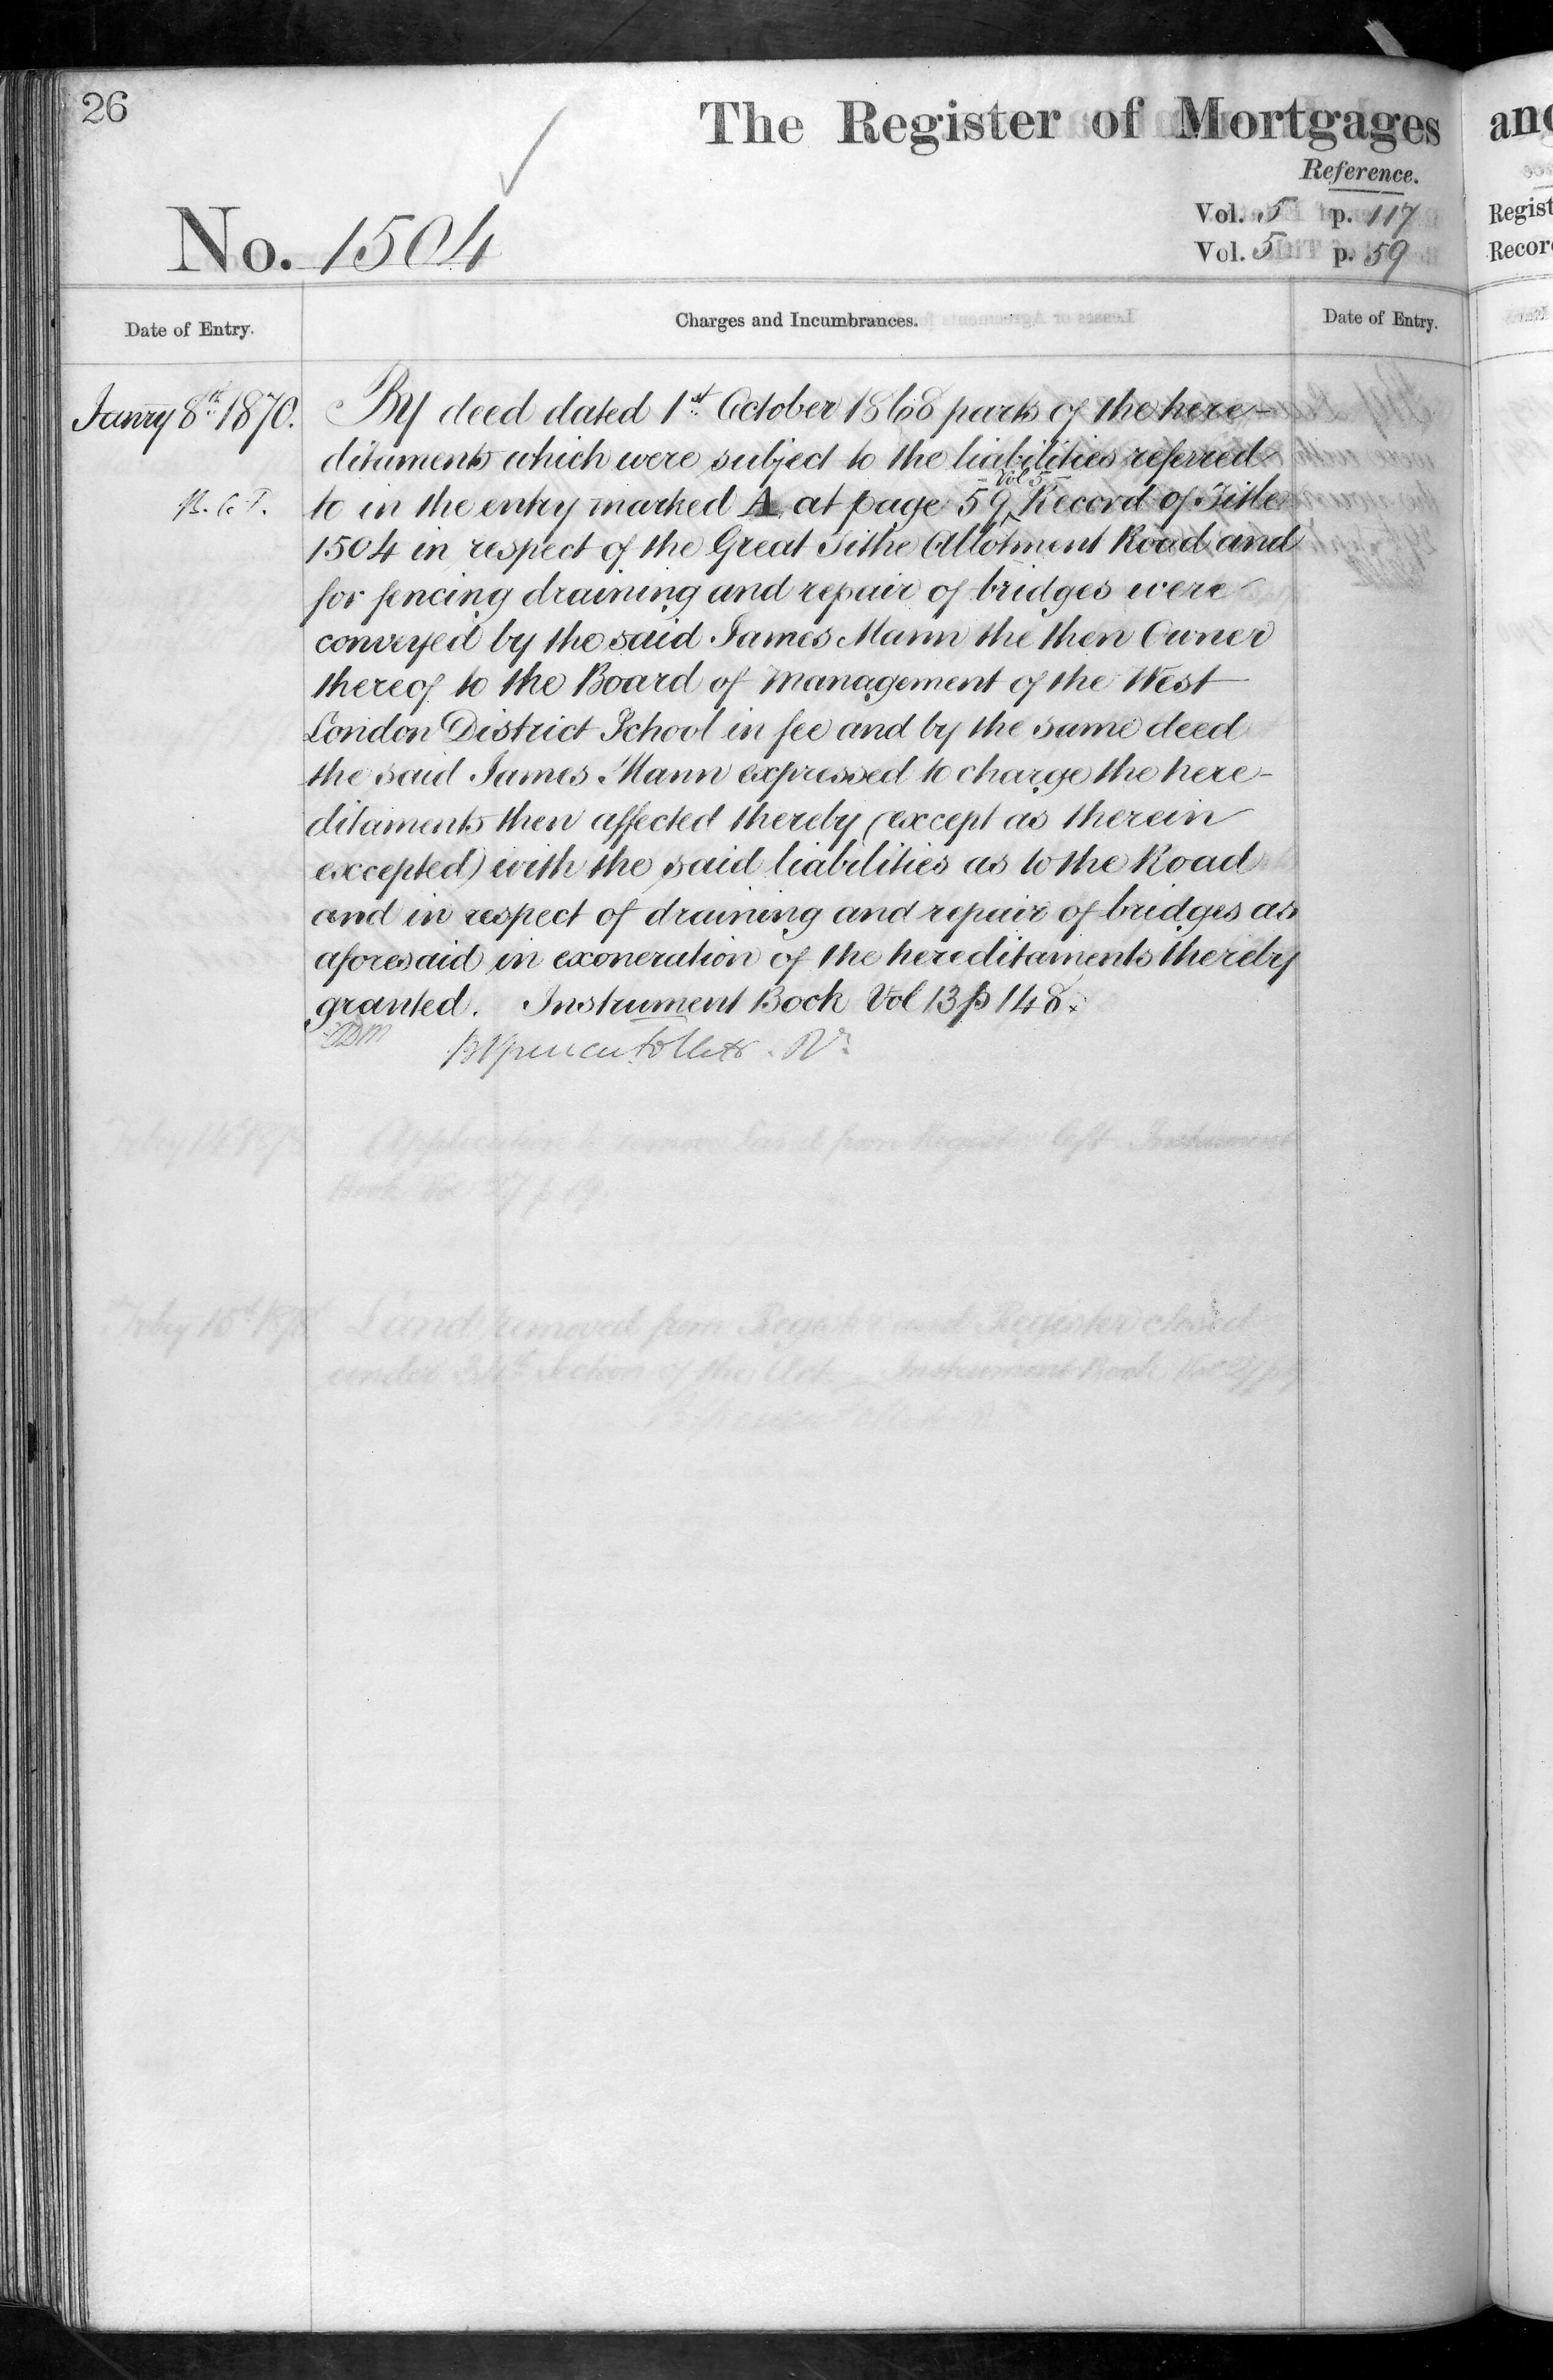 26
The Register of Mortgages
Reference.
Vol. 5 p. 117
No. 1504
Vol. 5 p. 59
Date of Entry.
Charges and Incumbrances.
Date of Entry.
Janry 8th 1870.
By deed dated 1st October 1868 parts of the here-
ditaments which were subject to the liabilities referred
Vol 5
to in the entry marked A at page 59 Record of Title
1504 in respect of the Great Tithe Allotment Road and
for fencing draining and repair of bridges were
conveyed by the said James Mann the then Owner
thereof to the Board of Management of the West
London District School in fee and by the same deed
the said James Mann expressed to charge the here-
ditaments then affected thereby (except as therein
excepted) with the said liabilities as to the Road
and in respect of draining and repair of bridges as
aforesaid in exoneration of the hereditaments thereby
granted. Instrument Book Vol 13 p 148.
Application to remove Land from Register left Instrument
Book Vol 27 p 19.
Land removed from Register and Register closed
under 34th Section of the Act. Instrument Book Vol 27 p
and
Regist
Recor